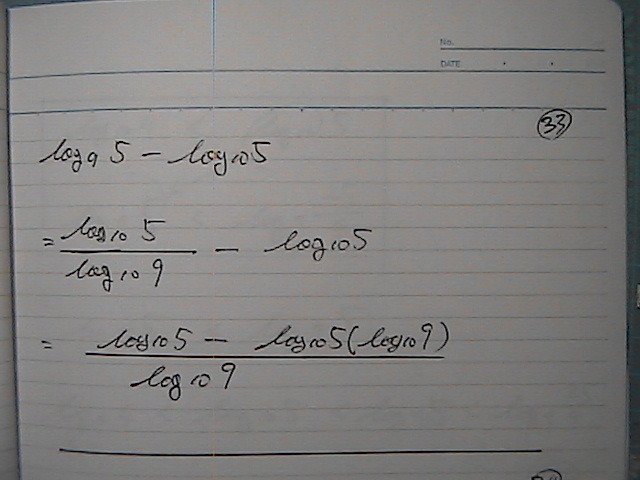 No.
DATE
33
log₉ 5 − log₁₀ 5
= log₁₀ 5 / log₁₀ 9 − log₁₀ 5
= log₁₀ 5 − log₁₀ 5 (log₁₀ 9) / log₁₀ 9